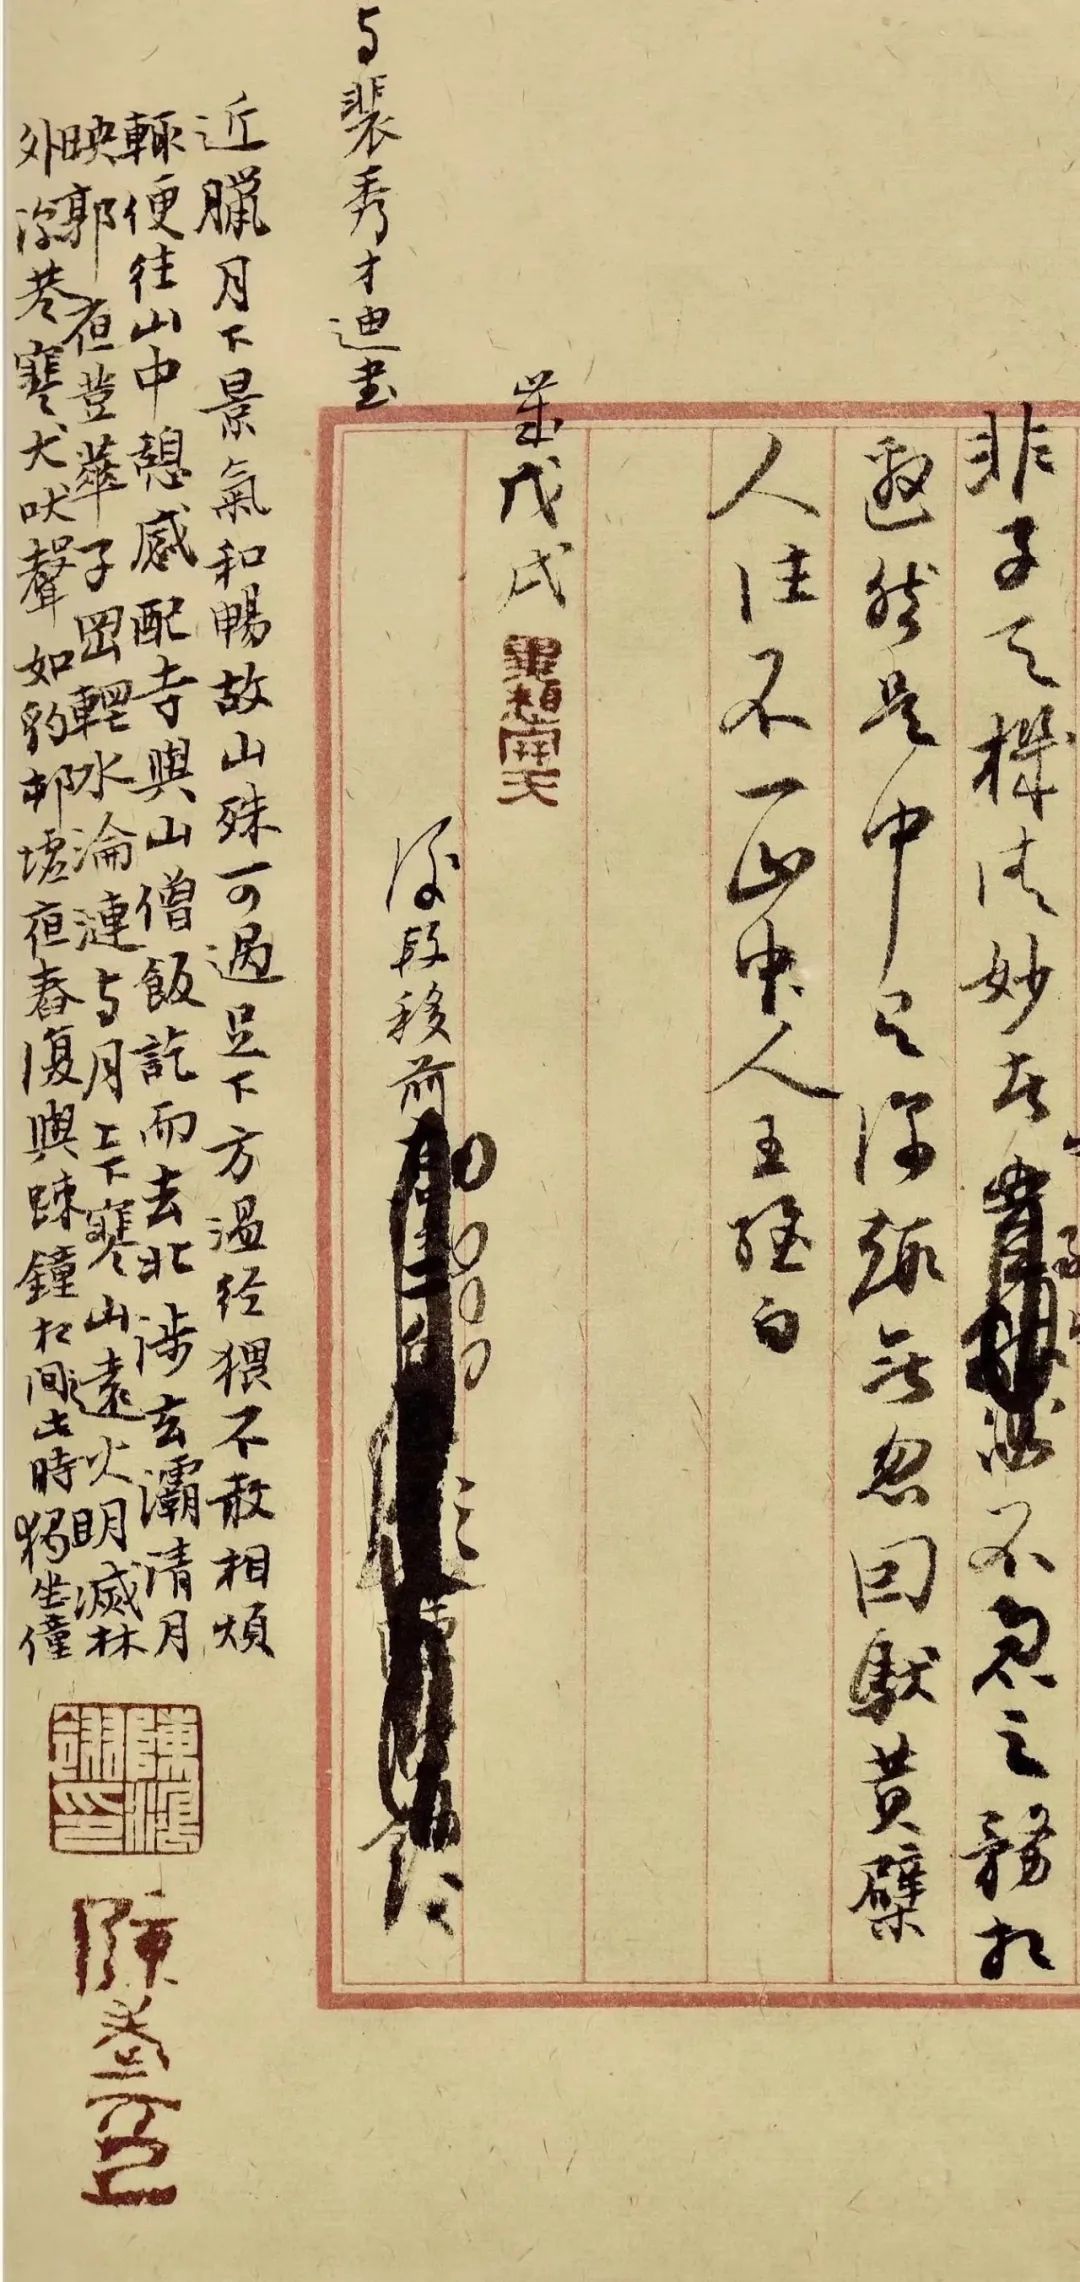 非子天機清妙者不急之務相
邀然是中有深趣無忽因馱黃檗
人往不一山中人王維白
歲戊戌
後段移前
与裴秀才迪書
近臘月下景氣和暢故山殊可過足下方溫經猥不敢相煩
輒便往山中憩感配寺與山僧飯訖而去北涉玄灞清月
映郭夜登華子岡輞水淪漣与月上下寒山遠火明滅林
外深巷寒犬吠聲如豹邨墟夜舂復與踈鐘相間此時獨坐僮